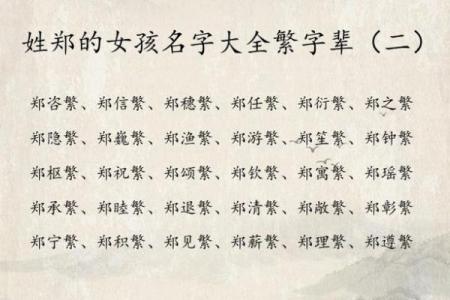 姓郑的女孩名字大全繁字辈（二）
郑咨繁、郑信繁、郑穗繁、郑任繁、郑衍繁、郑之繁
郑隐繁、郑巍繁、郑渔繁、郑游繁、郑笙繁、郑钟繁
郑枢繁、郑祝繁、郑颂繁、郑钦繁、郑寓繁、郑瑶繁
郑承繁、郑睦繁、郑退繁、郑清繁、郑敞繁、郑彰繁
郑宁繁、郑积繁、郑见繁、郑薪繁、郑理繁、郑遵繁